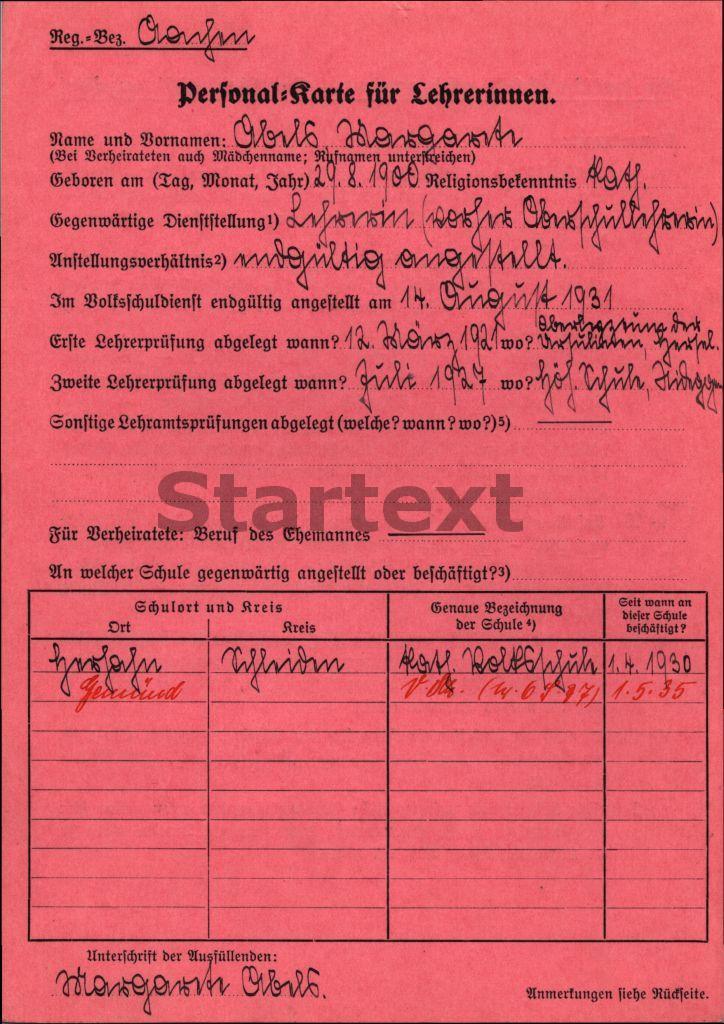 Reg.-Bez. Aachen
Personal-Karte für Lehrerinnen.
Name und Vornamen: Abels Margarete
(Bei Verheirateten auch Mädchenname; Rufnamen unterstreichen)
Geboren am (Tag, Monat, Jahr) 29.8.1900 Religionsbekenntnis kath.
Gegenwärtige Dienststellung¹) Lehrerin (vorher Oberschullehrerin)
Anstellungsverhältnis²) endgültig angestellt.
Im Volksschuldienst endgültig angestellt am 14. August 1931
Erste Lehrerprüfung abgelegt wann? 12. März 1921 wo? der Ursulinen, Hersel.
Zweite Lehrerprüfung abgelegt wann? Juli 1927 wo? Höh. Schule, Nideggen
Sonstige Lehramtsprüfungen abgelegt (welche? wann? wo?)⁵)
Startext
Für Verheiratete: Beruf des Ehemannes
An welcher Schule gegenwärtig angestellt oder beschäftigt?³)
Schulort und Kreis Genaue Bezeichnung der Schule⁴) Seit wann an dieser Schule beschäftigt?
Ort Kreis
Hergarn Schleiden Kath. Volksschule 1.4.1930
Gemünd 1.5.35
Unterschrift der Ausfüllenden:
Margarete Abels.
Anmerkungen siehe Rückseite.